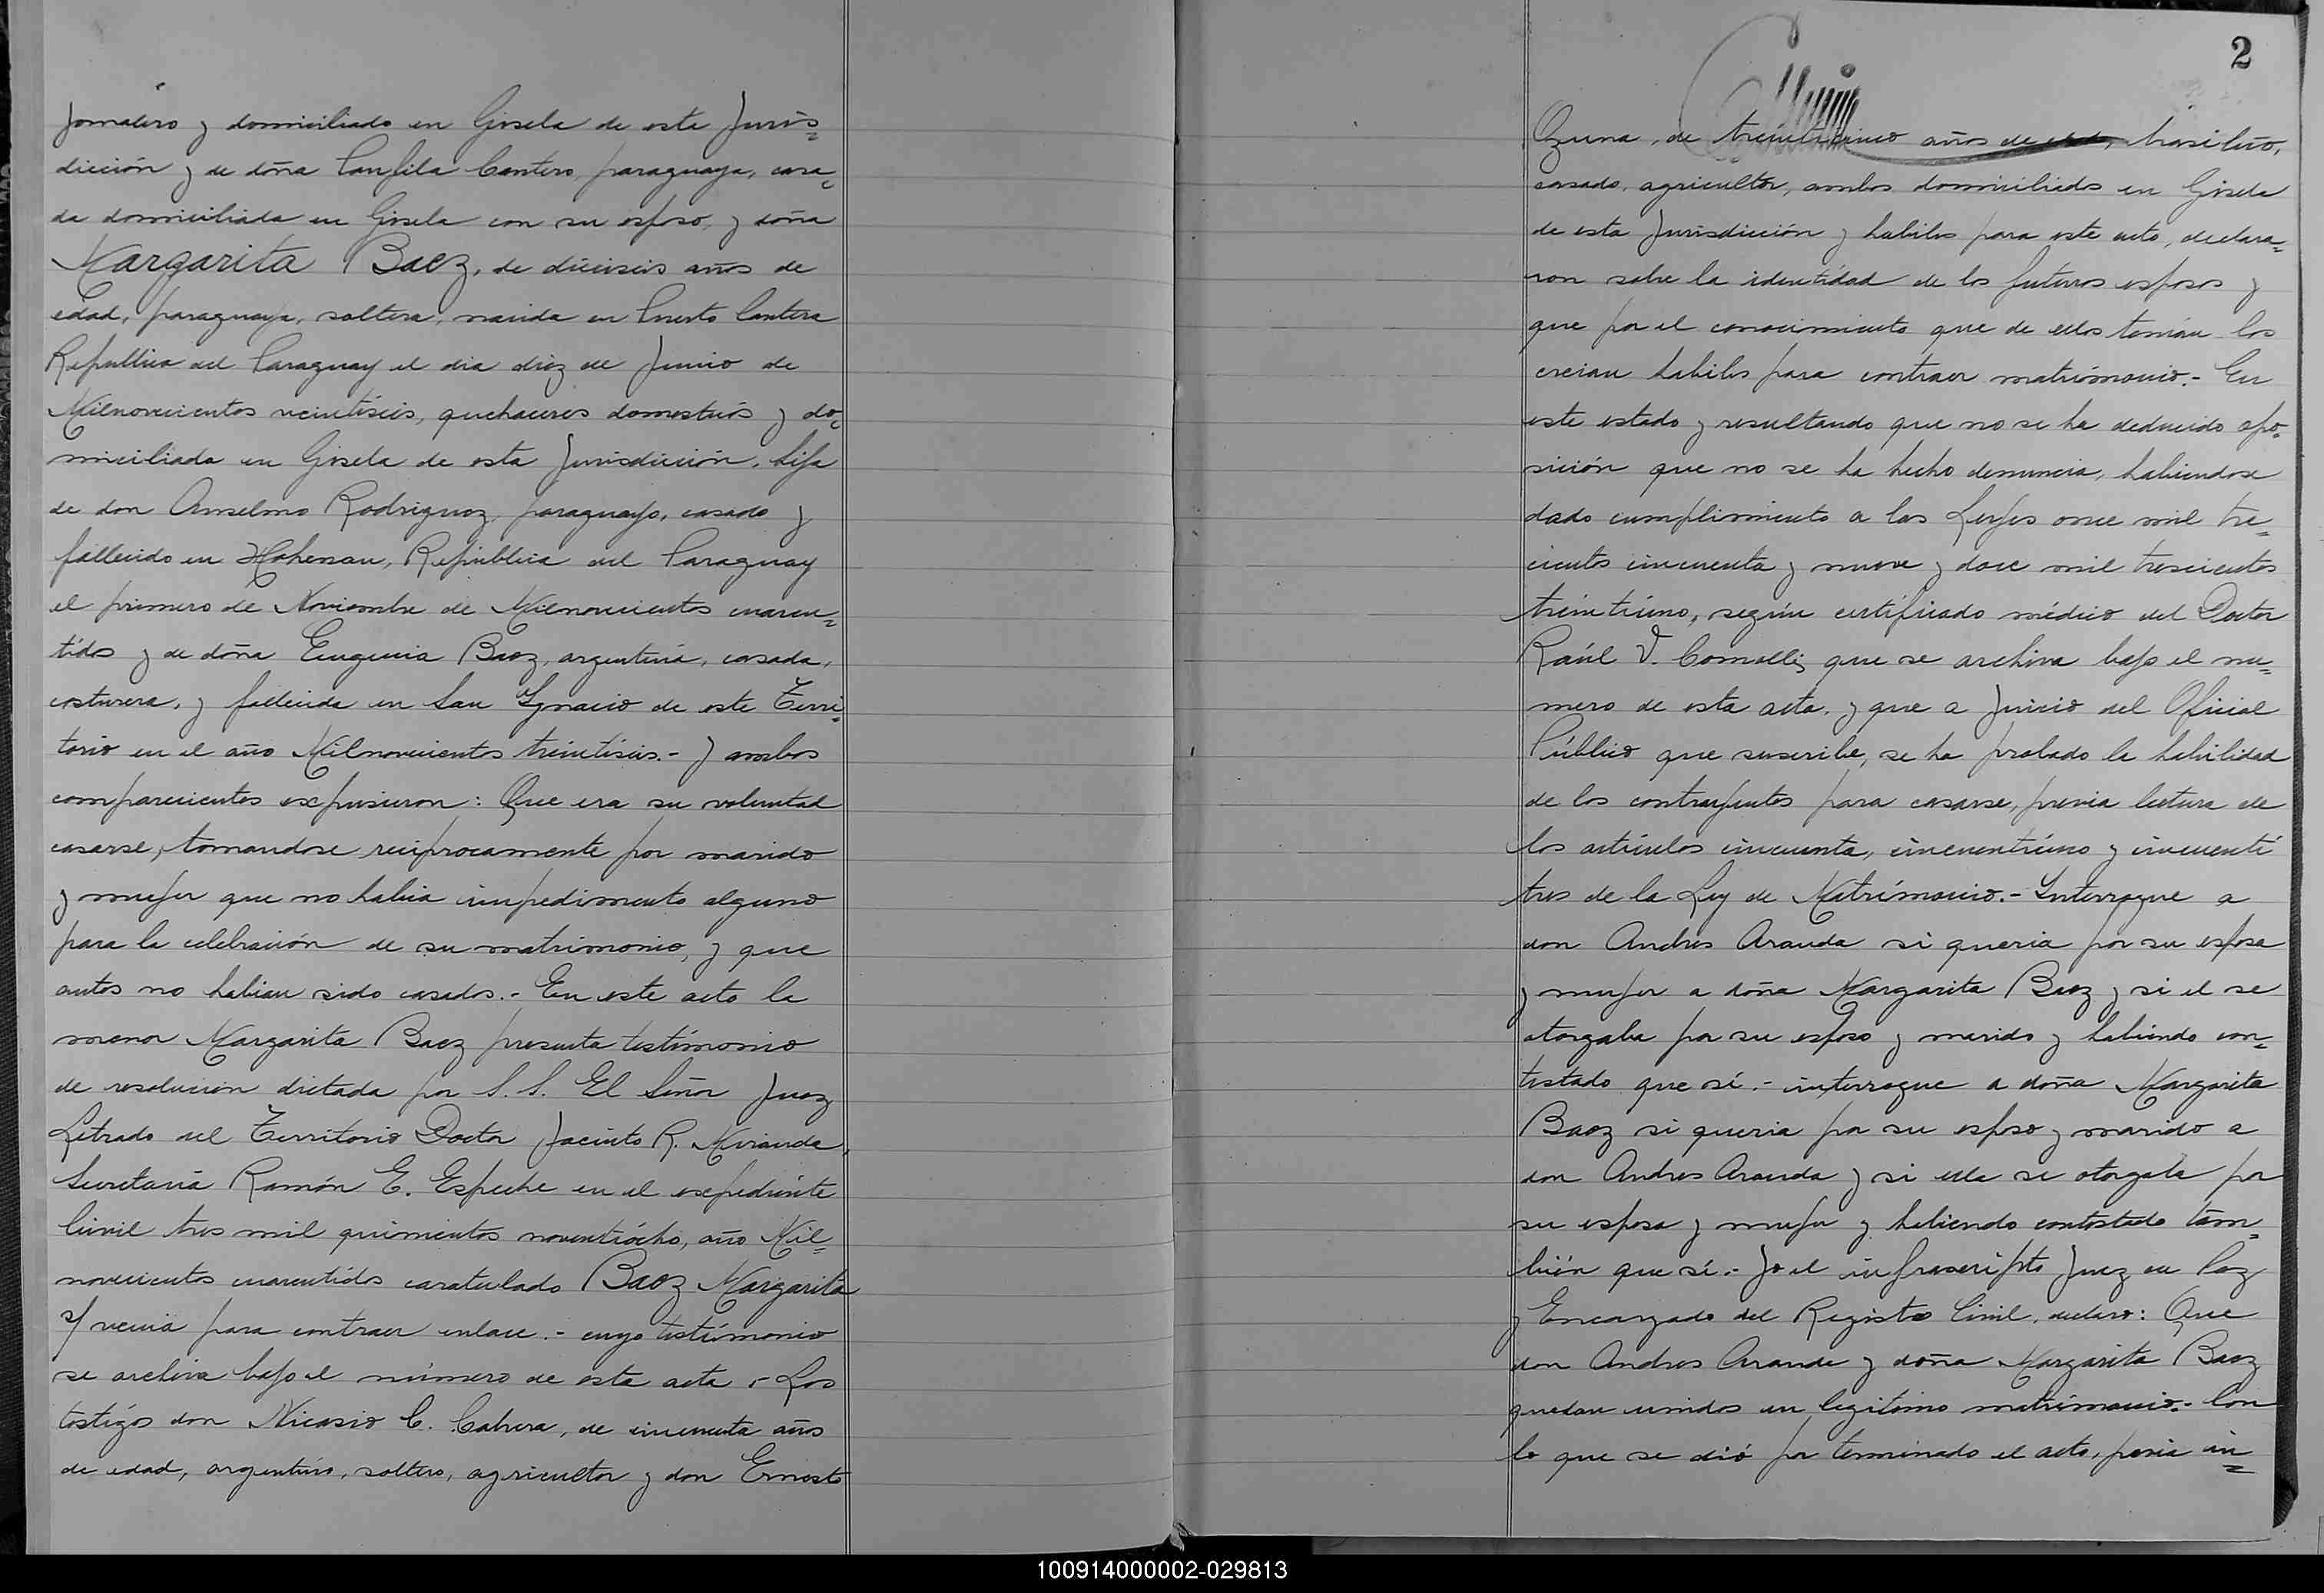 jornalero y domiciliado en Gisela de esta Juris=
dicción y de doña Panfila Cantero, paraguaya, casa=
da domiciliada en Gisela con su esposo, y doña
Margarita Baez, de dieciseis años de
edad, paraguaya, soltera, nacida en Puerto Cantera
Republica del Paraguay el dia diez de Junio de
Milnovecientos veintiséis, quehaceres domesticos y do=
miciliada en Gisela de esta Jurisdicción, hija
de don Anselmo Rodriguez, paraguayo, casado y
fallecido en Hohenau, República del Paraguay
el primero de Noviembre de Milnovecientos cuaren=
tidos y de doña Eugenia Baez, argentina, casada,
costurera, y fallecida en San Ygnacio de este Terri=
torio en el año Milnovecientos treintiseis.- Y ambos
comparecientes expusieron: Que era su voluntad
casarse, tomandose reciprocamente por marido
y mujer que no habia impedimento alguno
para la celebración de su matrimonio, y que
antes no habian sido casados.- En este acto la
menor Margarita Baez presenta testimonio
de resolución dictada por S. S. El Señor Juez
Letrado del Territorio Doctor Jacinto R. Miranda,
Secretaria Ramón E. Espeche en el expediente
Civil tres mil quinientos noventiócho, año Mil=
novecientos cuarentidos caratulado Baez Margarita
s/ venia para contraer enlace.- cuyo testimonio
se archiva bajo el número de esta acta.- Los
testigos don Nicasio C. Cabrera, de cincuenta años
de edad, argentino, soltero, agricultor y don Ernesto
2
Ozuna, de treinticinco años de edad, brasileño,
casado, agricultor, ambos domiciliados en Gisela
de esta Jurisdicción y habiles para este acto, declara=
ron sobre la identidad de los futuros esposos y
que por el conocimiento que de ellos tenian los
creian habiles para contraer matrimonio.- En
este estado y resultando que no se ha deducido opo=
sición que no se ha hecho denuncia, habiendose
dado cumplimiento a las Leyes once mil tre=
cientos cincuenta y nueve y doce mil trescientos
treintiuno, según certificado médico del Doctor
Raúl V. Comelli, que se archiva bajo el nu=
mero de esta acta, y que a Juicio del Oficial
Público que suscribe, se ha probado la habilidad
de los contrayentes para casarse, previa lectura de
los artículos cincuenta, cincuentiuno y cincuenti
tres de la Ley de Matrimonio.- Interrogue a
don Andres Aranda si queria por su esposa
y mujer a doña Margarita Baez y si el se
otorgaba por su esposo y marido y habiendo con=
testado que sí.- interrogue a doña Margarita
Baez si queria por su esposo y marido a
don Andres Aranda y si ella se otorgaba por
su esposa y mujer y habiendo contestado tam=
bién que sí.- Yo el infrascripto Juez de Paz
y Encargado del Registro Civil, declaro: Que
don Andres Aranda y doña Margarita Baez
quedan unidos en legitimo matrimonio.- Con
lo que se dió por terminado el acto, previa in=
100914000002-029813